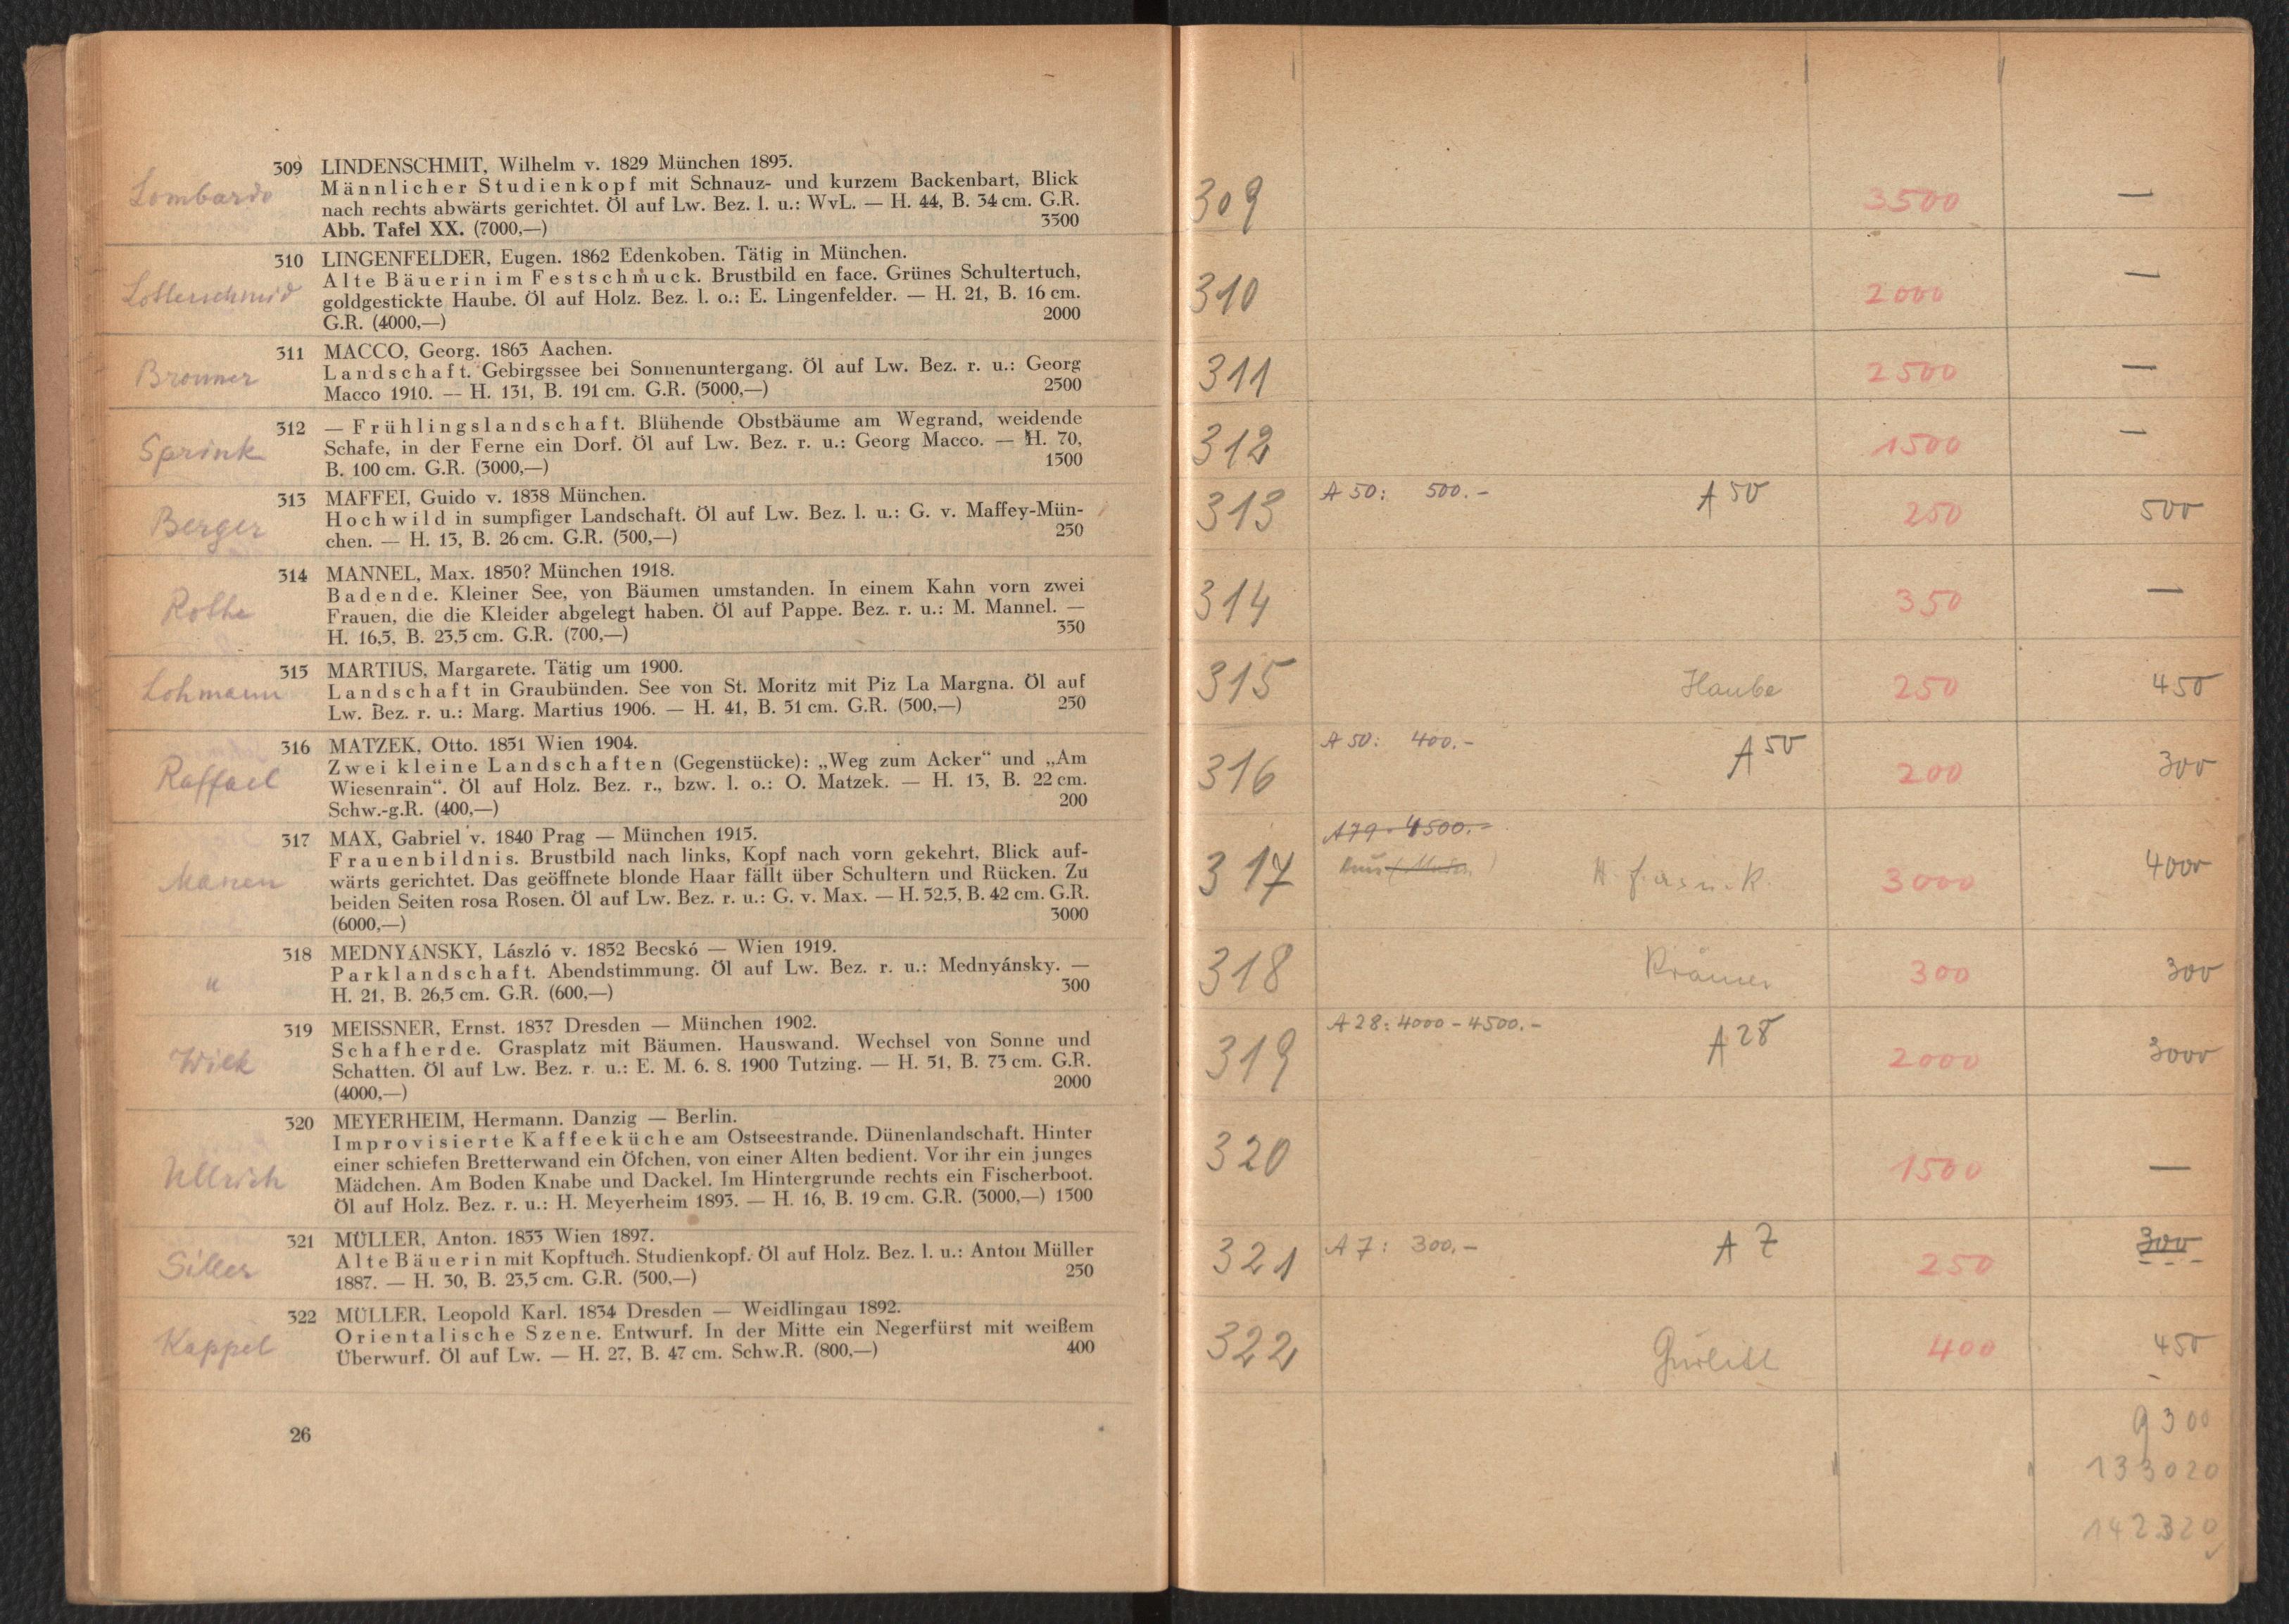 Lombardo
309 LINDENSCHMIT, Wilhelm v. 1829 München 1895.
Männlicher Studienkopf mit Schnauz- und kurzem Backenbart, Blick
nach rechts abwärts gerichtet. Öl auf Lw. Bez. l. u.: WvL. — H. 44, B. 34 cm. G.R.
Abb. Tafel XX. (7000,—) 3500
310 LINGENFELDER, Eugen. 1862 Edenkoben. Tätig in München.
Alte Bäuerin im Festschmuck. Brustbild en face. Grünes Schultertuch,
goldgestickte Haube. Öl auf Holz. Bez. l. o.: E. Lingenfelder. — H. 21, B. 16 cm.
G.R. (4000,—) 2000
Bronner
311 MACCO, Georg. 1863 Aachen.
Landschaft. Gebirgssee bei Sonnenuntergang. Öl auf Lw. Bez. r. u.: Georg
Macco 1910. — H. 131, B. 191 cm. G.R. (5000,—) 2500
Sprink
312 — Frühlingslandschaft. Blühende Obstbäume am Wegrand, weidende
Schafe, in der Ferne ein Dorf. Öl auf Lw. Bez. r. u.: Georg Macco. — H. 70,
B. 100 cm. G.R. (3000,—) 1500
Berger
313 MAFFEI, Guido v. 1838 München.
Hochwild in sumpfiger Landschaft. Öl auf Lw. Bez. l. u.: G. v. Maffey-Mün-
chen. — H. 13, B. 26 cm. G.R. (500,—) 250
Rothe
314 MANNEL, Max. 1850? München 1918.
Badende. Kleiner See, von Bäumen umstanden. In einem Kahn vorn zwei
Frauen, die die Kleider abgelegt haben. Öl auf Pappe. Bez. r. u.: M. Mannel. —
H. 16,5, B. 23,5 cm. G.R. (700,—) 350
Lohmann
315 MARTIUS, Margarete. Tätig um 1900.
Landschaft in Graubünden. See von St. Moritz mit Piz La Margna. Öl auf
Lw. Bez. r. u.: Marg. Martius 1906. — H. 41, B. 51 cm. G.R. (500,—) 250
Raffael
316 MATZEK, Otto. 1851 Wien 1904.
Zwei kleine Landschaften (Gegenstücke): „Weg zum Acker“ und „Am
Wiesenrain“. Öl auf Holz. Bez. r., bzw. l. o.: O. Matzek. — H. 13, B. 22 cm.
Schw.-g.R. (400,—) 200
317 MAX, Gabriel v. 1840 Prag — München 1915.
Frauenbildnis. Brustbild nach links, Kopf nach vorn gekehrt, Blick auf-
wärts gerichtet. Das geöffnete blonde Haar fällt über Schultern und Rücken. Zu
beiden Seiten rosa Rosen. Öl auf Lw. Bez. r. u.: G. v. Max. — H. 52,5, B. 42 cm. G.R.
(6000,—) 3000
"
318 MEDNYÁNSKY, László v. 1852 Becskó — Wien 1919.
Parklandschaft. Abendstimmung. Öl auf Lw. Bez. r. u.: Mednyánsky. —
H. 21, B. 26,5 cm. G.R. (600,—) 300
Wilk
319 MEISSNER, Ernst. 1837 Dresden — München 1902.
Schafherde. Grasplatz mit Bäumen. Hauswand. Wechsel von Sonne und
Schatten. Öl auf Lw. Bez. r. u.: E. M. 6. 8. 1900 Tutzing. — H. 51, B. 73 cm. G.R.
(4000,—) 2000
Ullrich
320 MEYERHEIM, Hermann. Danzig — Berlin.
Improvisierte Kaffeeküche am Ostseestrande. Dünenlandschaft. Hinter
einer schiefen Bretterwand ein Öfchen, von einer Alten bedient. Vor ihr ein junges
Mädchen. Am Boden Knabe und Dackel. Im Hintergrunde rechts ein Fischerboot.
Öl auf Holz. Bez. r. u.: H. Meyerheim 1893. — H. 16, B. 19 cm. G.R. (3000,—) 1500
Siller
321 MÜLLER, Anton. 1853 Wien 1897.
Alte Bäuerin mit Kopftuch. Studienkopf. Öl auf Holz. Bez. l. u.: Anton Müller
1887. — H. 30, B. 23,5 cm. G.R. (500,—) 250
Kappel
322 MÜLLER, Leopold Karl. 1834 Dresden — Weidlingau 1892.
Orientalische Szene. Entwurf. In der Mitte ein Negerfürst mit weißem
Überwurf. Öl auf Lw. — H. 27, B. 47 cm. Schw.R. (800,—) 400
26
309 3500 —
310 2000 —
311 2500 —
312 1500 —
313 A 50: 500.- A 50 250 500
314 350 —
315 Haube 250 450
316 A 50: 400.- A 50 200 300
A79: 4500.-
317 3000 4000
318 Krämer 300 300
319 A 28: 4000 - 4500.- A 28 2000 3000
320 1500 —
321 A 7: 300.- A 7 250 300
322 Gurlitt 400 450
9300
133020
142320